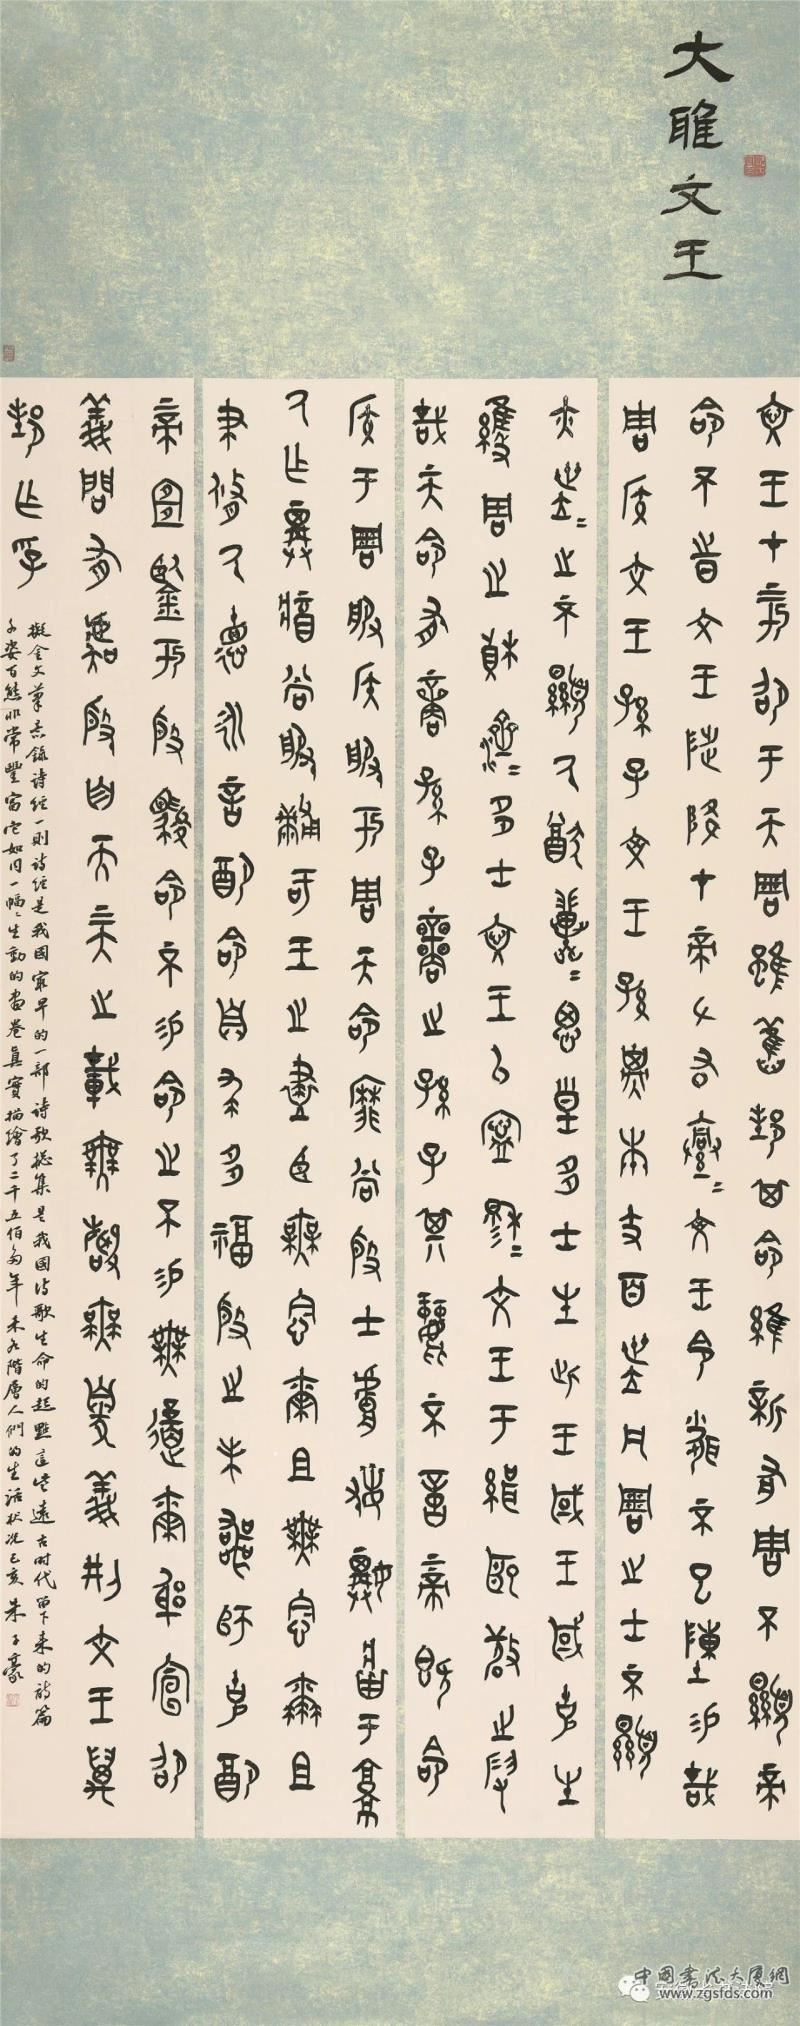 大雅文王
文王在上於昭于天周雖舊邦其命維新有周不顯帝
命不時文王陟降在帝左右亹亹文王令聞不已陳錫哉
周侯文王孫子文王孫子本支百世凡周之士不顯
亦世世之不顯厥猶翼翼思皇多士生此王國王國克生
維周之楨濟濟多士文王以寧穆穆文王于緝熙敬止假
哉天命有商孫子商之孫子其麗不億上帝既命
侯于周服侯服于周天命靡常殷士膚敏祼將于京
厥作祼將常服黼冔王之藎臣無念爾祖無念爾祖
聿修厥德永言配命自求多福殷之未喪師克配上
帝宜鑒于殷駿命不易命之不易無遏爾躬宣昭
義問有虞殷自天上天之載無聲無臭義刑文王萬
邦作孚
擬金文筆意錄詩經一則詩經是我國最早的一部詩歌總集是我國詩歌生命的起點這些遠古时代留下来的詩篇
千姿百態非常豐富它如同一幅幅生動的畫卷真實描繪了二千五佰多年来各階層人們的生活狀況己亥朱子豪
中國書法大厦網
www.zgsfds.com